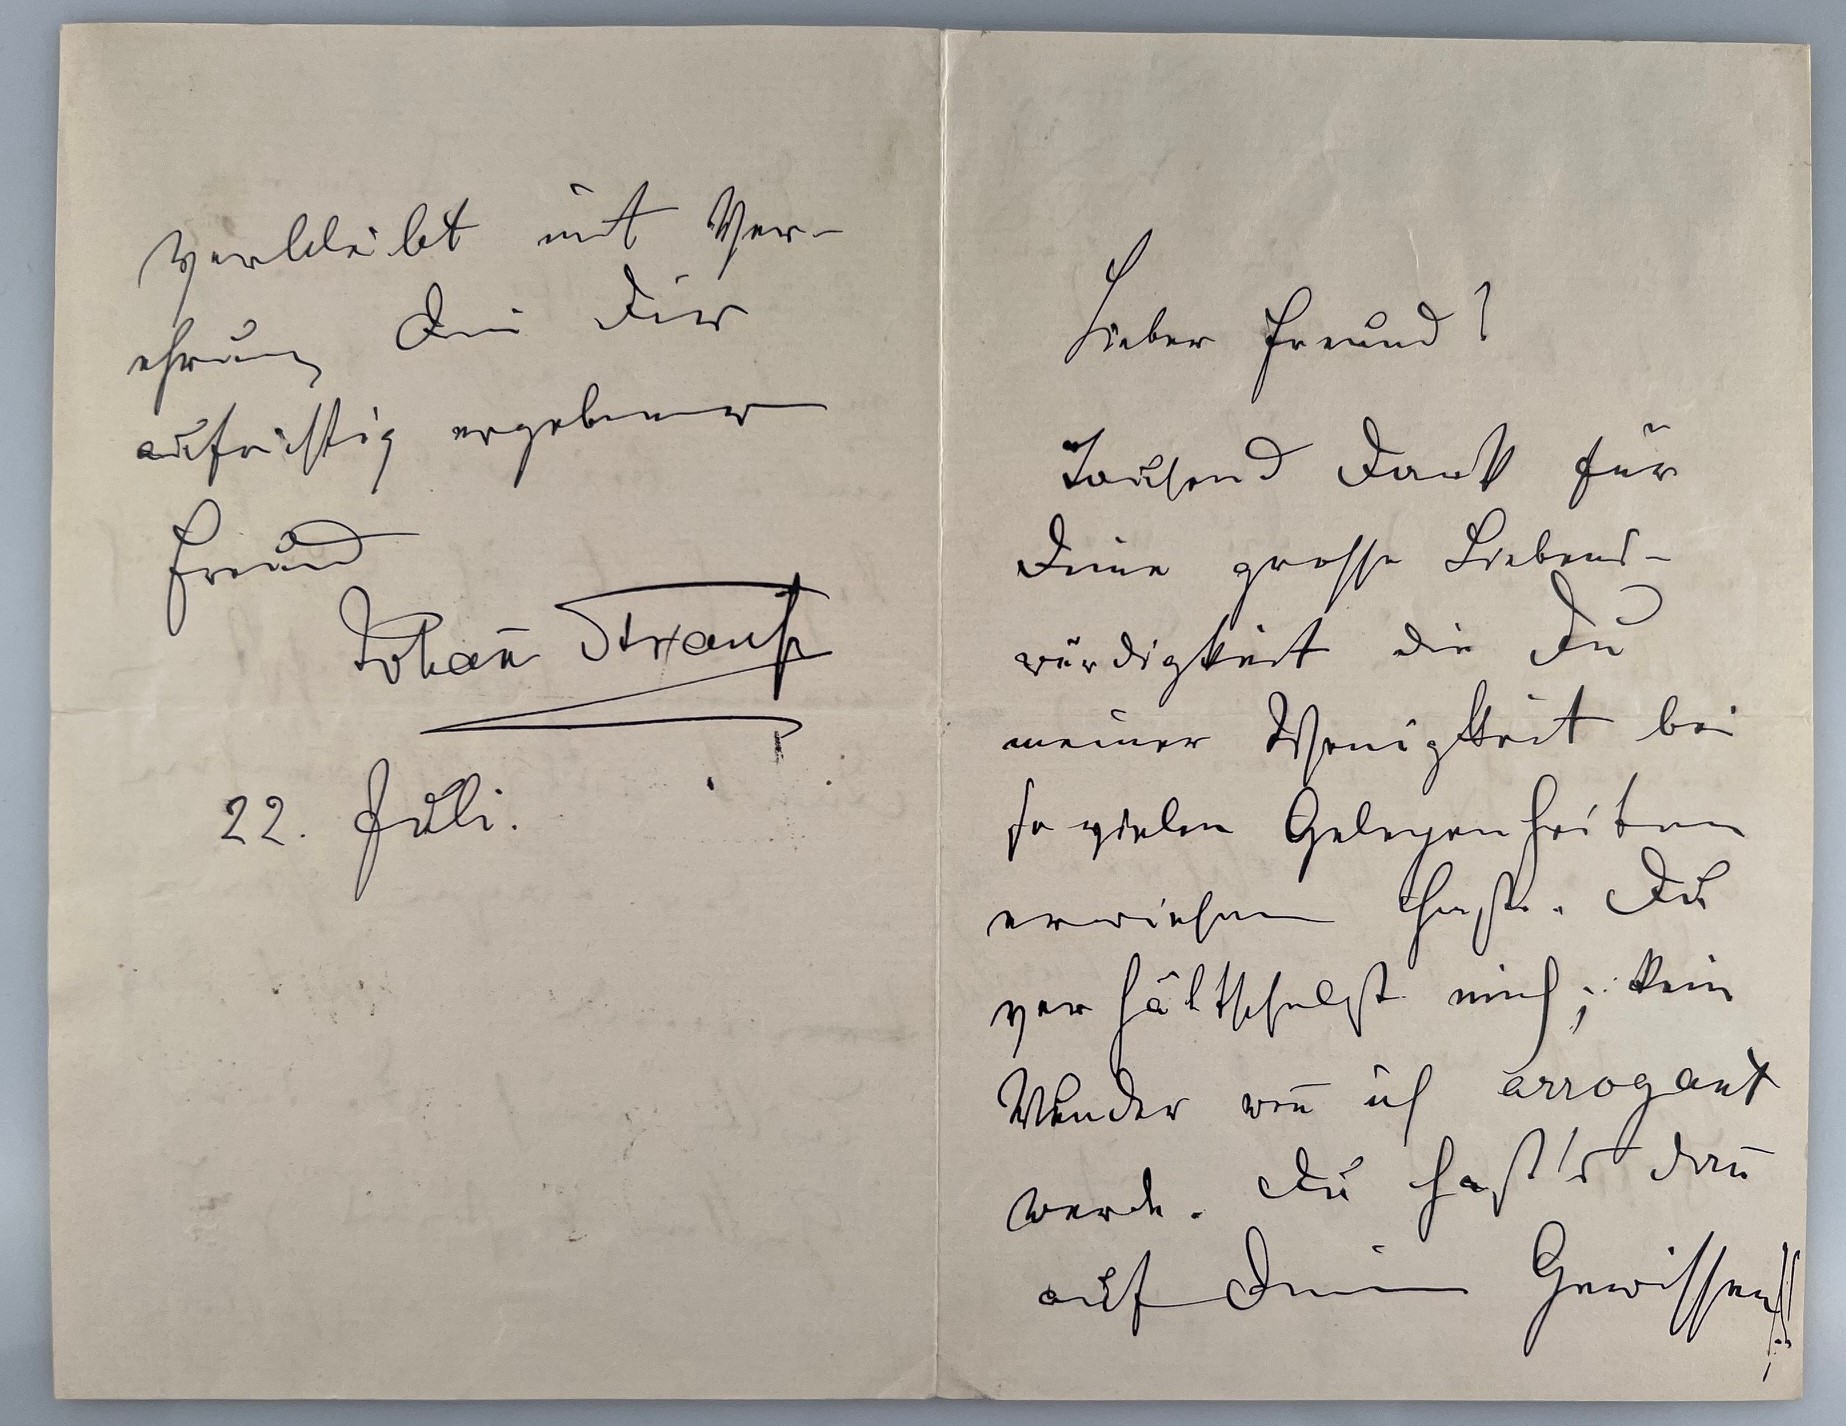 Lieber Freund!
Tausend Dank für
Deine grosse Liebens-
würdigkeit die Du
meiner Wenigkeit bei
so vielen Gelegenheiten
erwiesen hast. Du
verhältschelst mich; kein
Wunder weñ ich arrogant
werde. Du hast's dañ
auf Deinem Gewissen!!
verbleibt mit Ver-
ehrung Dein Dir
aufrichtig ergebener
Freund
Johañ Strauß
22. Juli.